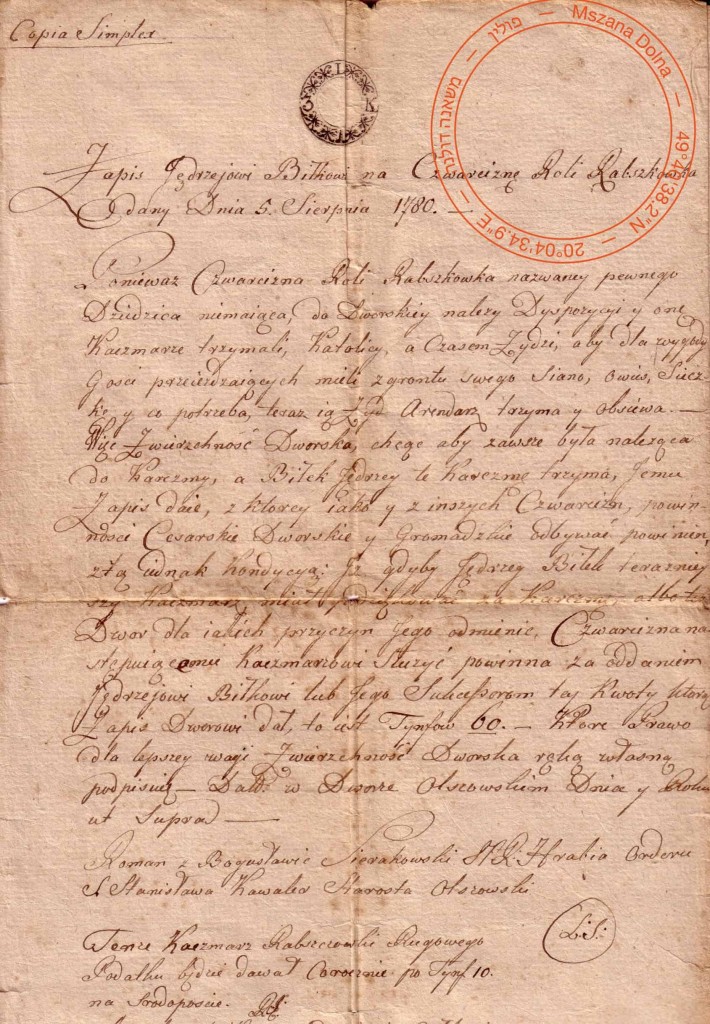 Copia Simplex
Mszana Dolna — 49°41'38.2"N — 20°04'34.9"E — מאשנה דולנה — פולין —
Zapis Jędrzejowi Bitkowi na Czwarciznę Roli Rabszkowka
dany Dnia 5. Sierpnia 1780. —
Ponieważ Czwarcizna Roli Rabszkowka nazwaney pewnego
Dziedzica niemaiąca, do Dworskiey należy Dyspozycyi y onę
Kaczmarze trzymali, Katolicy, a Czasem Żydzi, aby dla wygody
Gosci przeieżdzaiących mieli z grontu swego Siano, owies, Siecz-
kę y co potrzeba, teraz ią Arendarz trzyma y obsiewa. —
Więc Zwierzchność Dworska, chcąc aby zawsze była należąca
do Karczmy, a Bitek Jędrzey tę Karczmę trzyma, Jemu
Zapis daie, z ktorey iako y z inszych Czwarcizn, powin-
ności Cesarskie Dworskie y Gromadzkie odbywać powinien,
z tą iednak Kondycyą: Iż gdyby Jędrzey Bitek teraźniey
szy Kaczmarz miał podziękować za Karczmę, albo też
Dwor dla iakich przyczyn Jego odmienić, Czwarcizna na-
stępuiącemu Kaczmarzowi służyć powinna za oddaniem
Jędrzejowi Bitkowi lub Jego Sukcessorom tej Kwoty którą
Zapis Dworowi dał, to iest Tynfow 60. — Ktore Prawo
dla lepszey wagi Zwierzchność Dworska ręką własną
podpisuię — Datt w Dworze Olszowskim Dnia y Roku
ut Supra —
Roman z Bogusławic Sierakowski Hrabia Orderu
S. Stanisława Kawaler Starosta Olszowski
L:S:
Tenze Kaczmarz Rabszczowski Rugowego
Podatku będzie dawał Corocznie po Tynf 10.
na Srodoposcie.